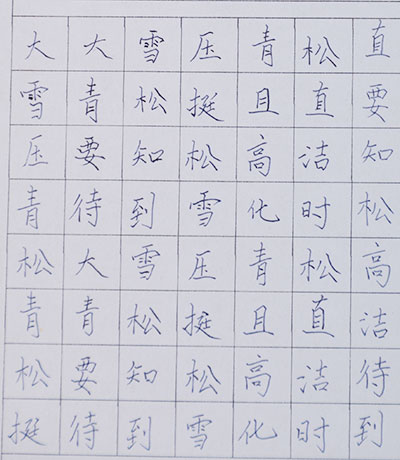 大大雪压青松直
雪青松挺且直要
压要知松高洁知
青待到雪化时松
松大雪压青松高
青青松挺且直洁
松要知松高洁待
挺待到雪化时到